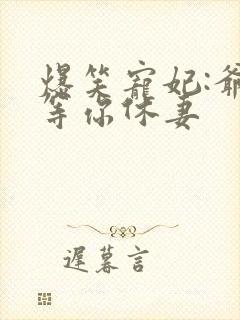 爆笑寵妃:爺
等你休妻
遲暮言